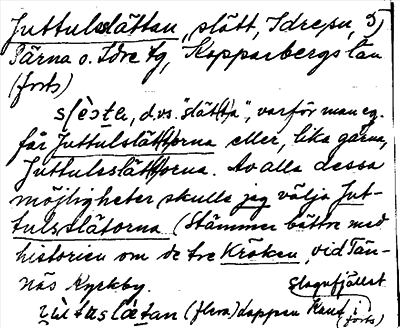 Juttulslättan, slätt, Idre sn, 3)
Särna o. Idre tg, Kopparbergs län
(forts)
slèta, d.vs. "slät(t)a", varför man eg.
får Juttulslät(t)orna eller, lika gärna,
Juttulsslät(t)orna. Av alla dessa
möjligheter skulle jag välja Jut-
tulsslätorna (Stämmer bättre med
historien om de tre Kröken, vid Tän-
näs Kyrkby.
Slogufjället
(flera) toppen
(forts)